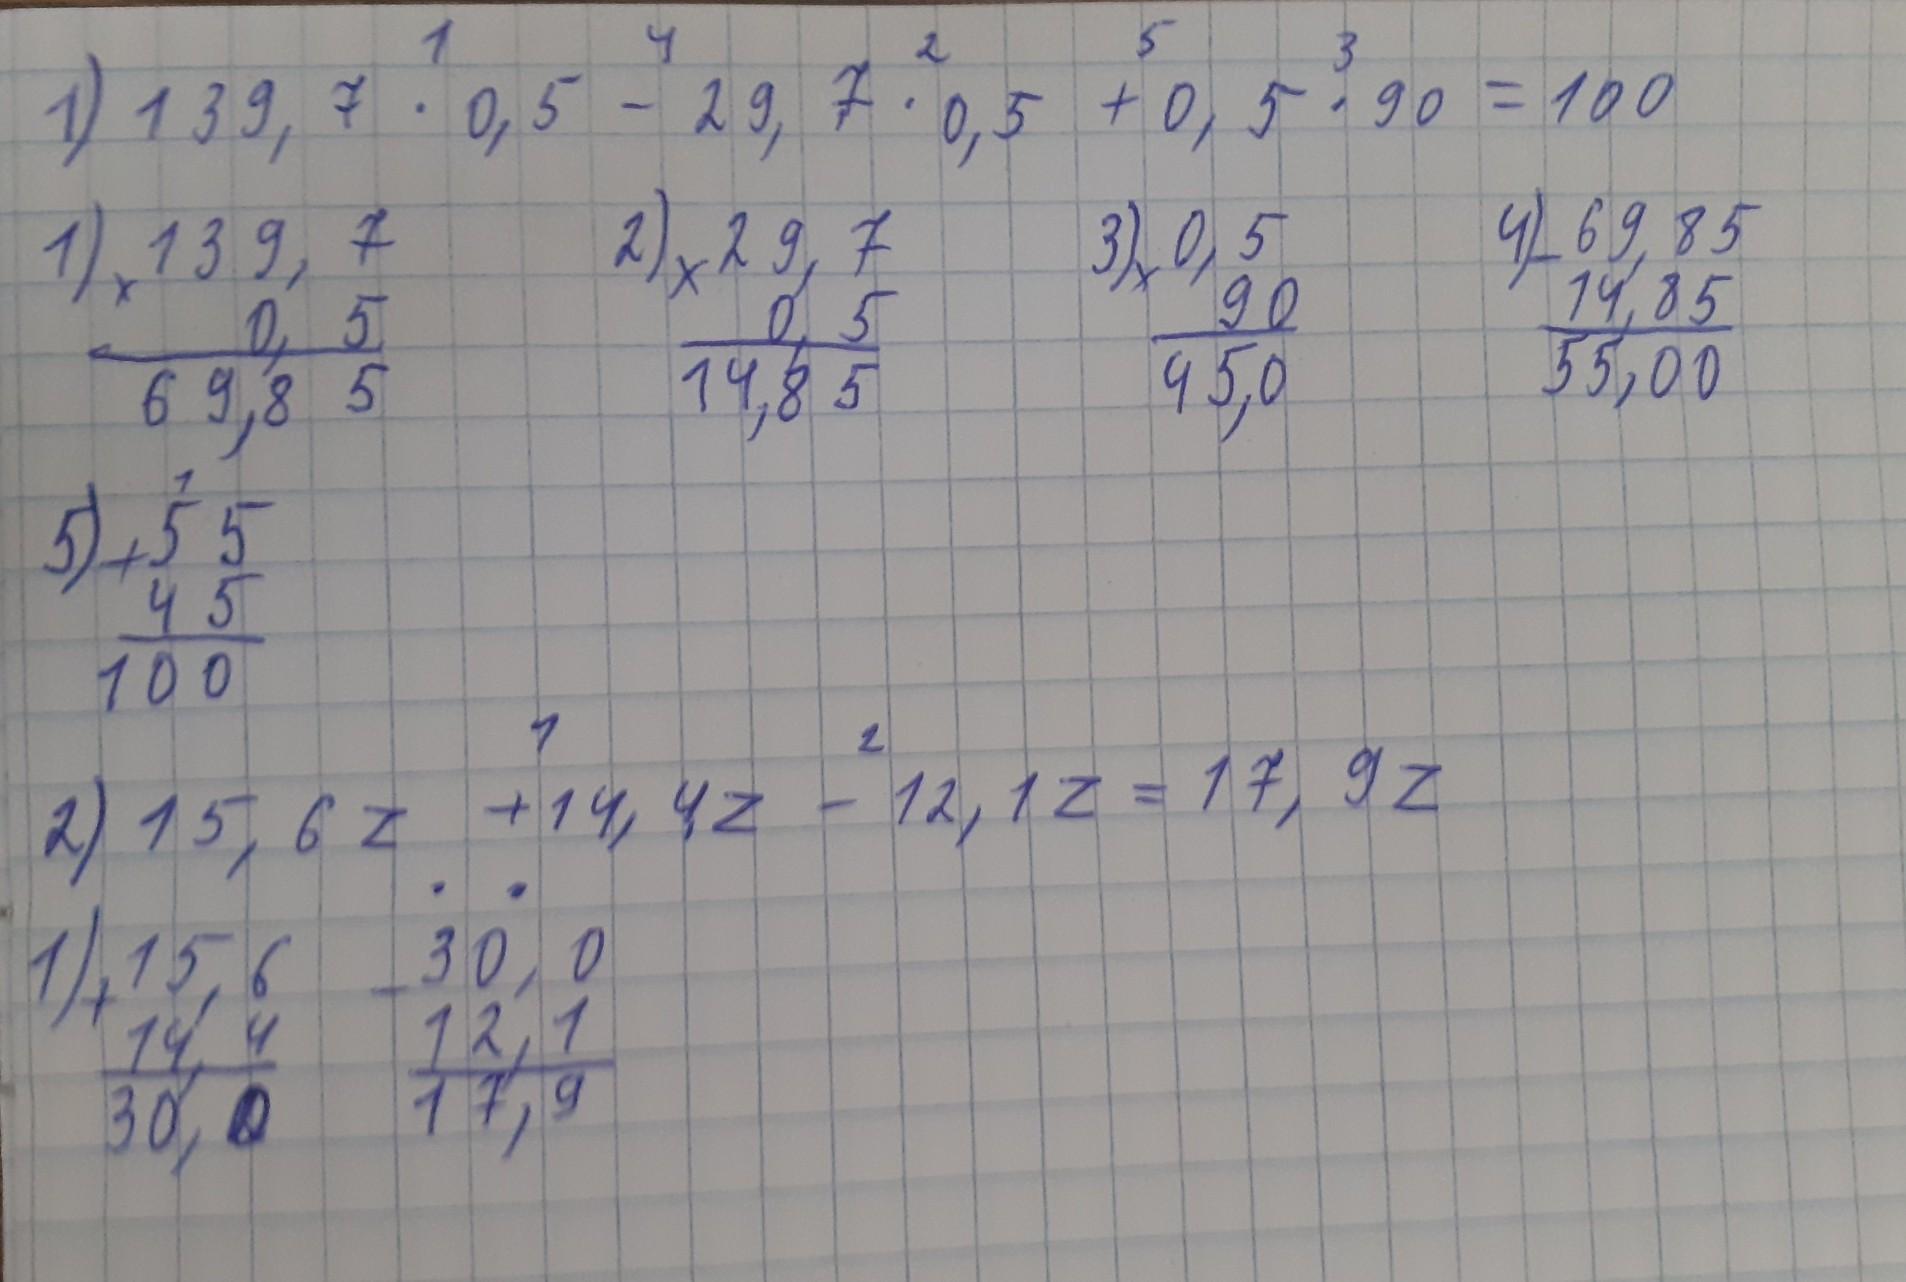 1 4 2 5 3
1) 139,7 · 0,5 - 29,7 · 0,5 + 0,5 · 90 = 100
1) × 139,7 2) × 29,7 3) × 0,5 4) - 69,85
0,5 0,5 90 14,85
69,85 14,85 45,0 55,00
1
5) + 55
45
100
1 2
2) 15,6z + 14,4z - 12,1z = 17,9z
. .
1) + 15,6 - 30,0
14,4 12,1
30,0 17,9